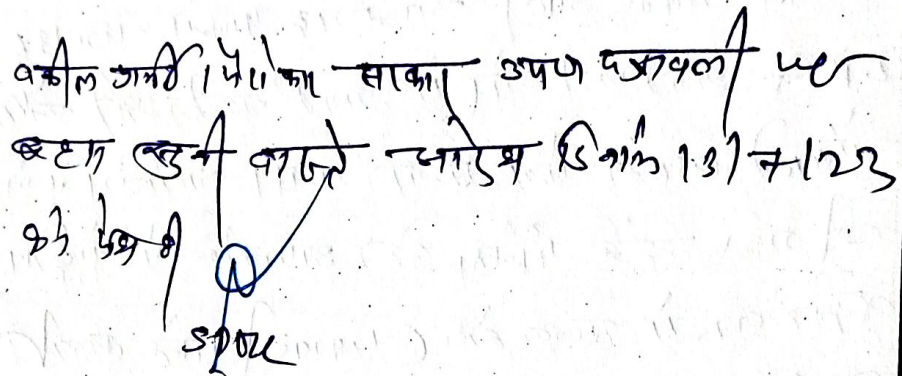 वकील प्रार्थी। पैरोकार सरकार उप० पत्रावली पर
बहस सुनी वास्ते आदेश दिनांक 13/7/23
को पेश हो